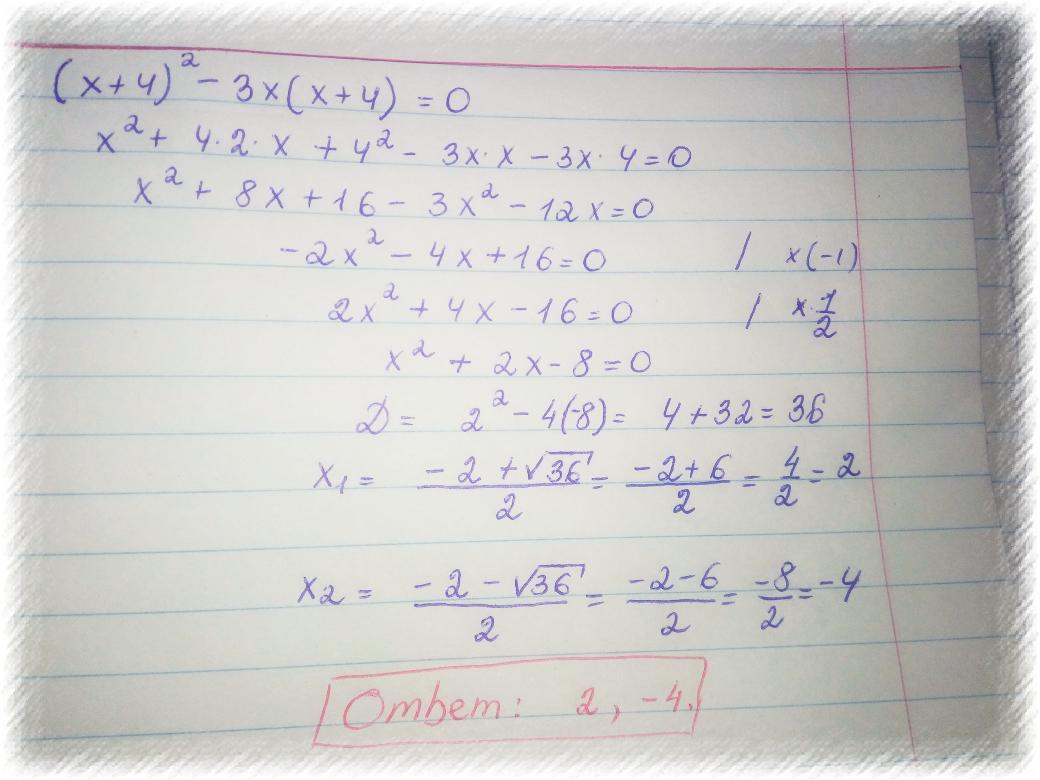 (x+4)² - 3x(x+4) = 0
x² + 4·2·x + 4² - 3x·x - 3x·4 = 0
x² + 8x + 16 - 3x² - 12x = 0
-2x² - 4x + 16 = 0 / x(-1)
2x² + 4x - 16 = 0 / x·1/2
x² + 2x - 8 = 0
D = 2² - 4(-8) = 4 + 32 = 36
x₁ = (-2 + √36)/2 = (-2+6)/2 = 4/2 = 2
x₂ = (-2 - √36)/2 = (-2-6)/2 = -8/2 = -4
Ответ: 2, -4.